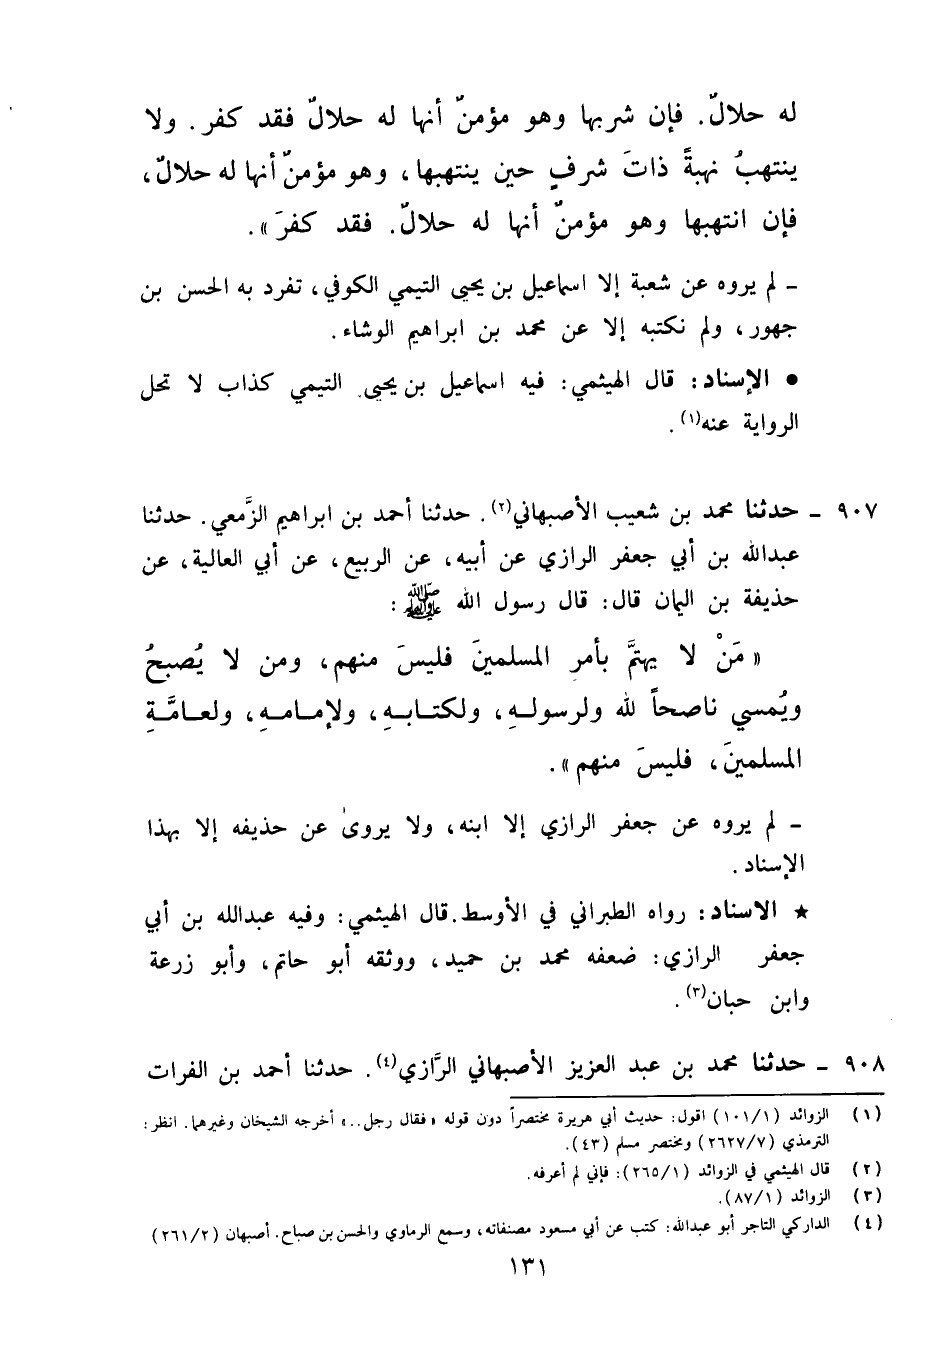 له حلالٌ. فإن شربها وهو مؤمنٌ أنها له حلالٌ فقد كفر. ولا
ينتهبُ نهبةً ذاتَ شرفٍ حين ينتهبها، وهو مؤمنٌ أنها له حلالٌ،
فإن انتهبها وهو مؤمنٌ أنها له حلالٌ. فقد كفرَ».
ـ لم يروه عن شعبة إلا اسماعيل بن يحيى التيمي الكوفي، تفرد به الحسن بن
جهور، ولم نكتبه إلا عن محمد بن ابراهيم الوشاء.
● الإسناد: قال الهيثمي: فيه اسماعيل بن يحيى التيمي كذاب لا تحل
الرواية عنه(١).
٩٠٧ ـ حدثنا محمد بن شعيب الأصبهاني(٢). حدثنا أحمد بن ابراهيم الزَّمعي. حدثنا
عبدالله بن أبي جعفر الرازي عن أبيه، عن الربيع، عن أبي العالية، عن
حذيفة بن اليمان قال: قال رسول الله ﷺ:
«مَنْ لا يهتمَّ بأمرِ المسلمينَ فليسَ منهم، ومن لا يُصبحُ
ويُمسي ناصحاً لله ولرسولهِ، ولكتابهِ، ولإمامهِ، ولعامَّةِ
المسلمينَ، فليسَ منهم».
ـ لم يروه عن جعفر الرازي إلا ابنه، ولا يروىٰ عن حذيفه إلا بهذا
الإسناد.
★ الاسناد: رواه الطبراني في الأوسط. قال الهيثمي: وفيه عبدالله بن أبي
جعفر الرازي: ضعفه محمد بن حميد، ووثقه أبو حاتم، وأبو زرعة
وابن حبان(٣).
٩٠٨ ـ حدثنا محمد بن عبد العزيز الأصبهاني الرَّازي(٤). حدثنا أحمد بن الفرات
(١) الزوائد (١٠١/١) اقول: حديث أبي هريرة مختصراً دون قوله «فقال رجل..» أخرجه الشيخان وغيرهما. انظر:
الترمذي (٢٦٢٧/٧) ومختصر مسلم (٤٣).
(٢) قال الهيثمي في الزوائد (٢٦٥/١): فإني لم أعرفه.
(٣) الزوائد (٨٧/١).
(٤) الداركي التاجر أبو عبدالله: كتب عن أبي مسعود مصنفاته، وسمع الرماوي والحسن بن صباح. أصبهان (٢٦١/٢)
١٣١